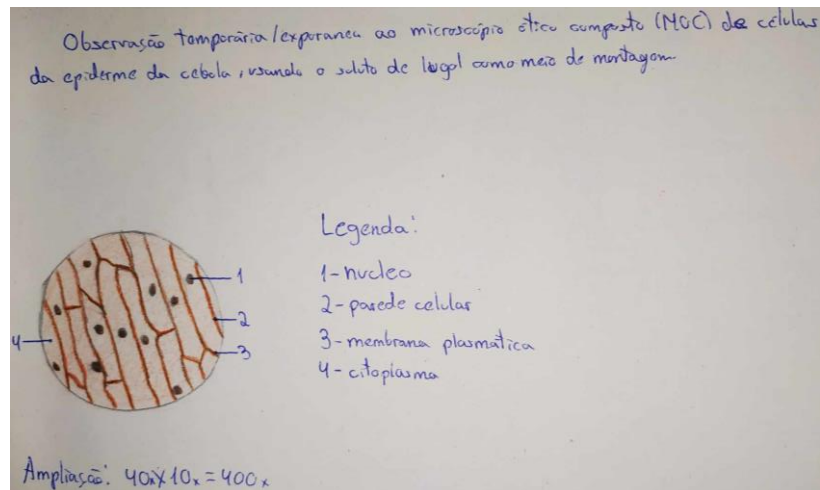 Observação temporária/exporanea ao microscópio ótico composto (MOC) de células
da epiderme da cebola, usando o soluto de lugol como meio de montagem
Legenda:
1-nucleo
2-parede celular
3-membrana plasmática
4-citoplasma
1
2
3
4
Ampliação: 40x×10x=400x